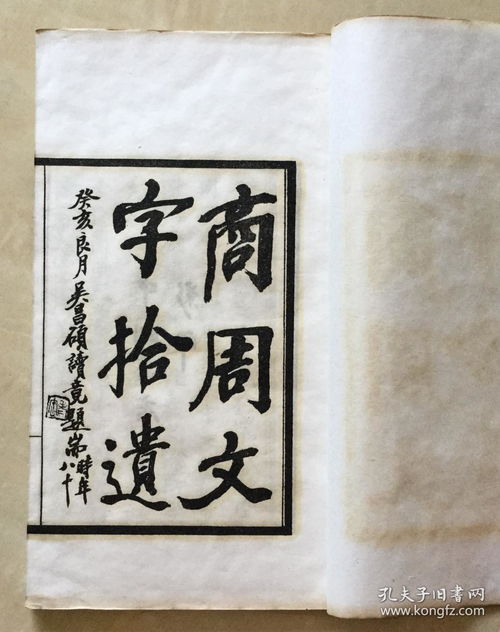 商周文
字拾遺
癸亥良月吴昌碩讀竟題耑時年
八十
孔夫子旧书网
www.kongfz.com